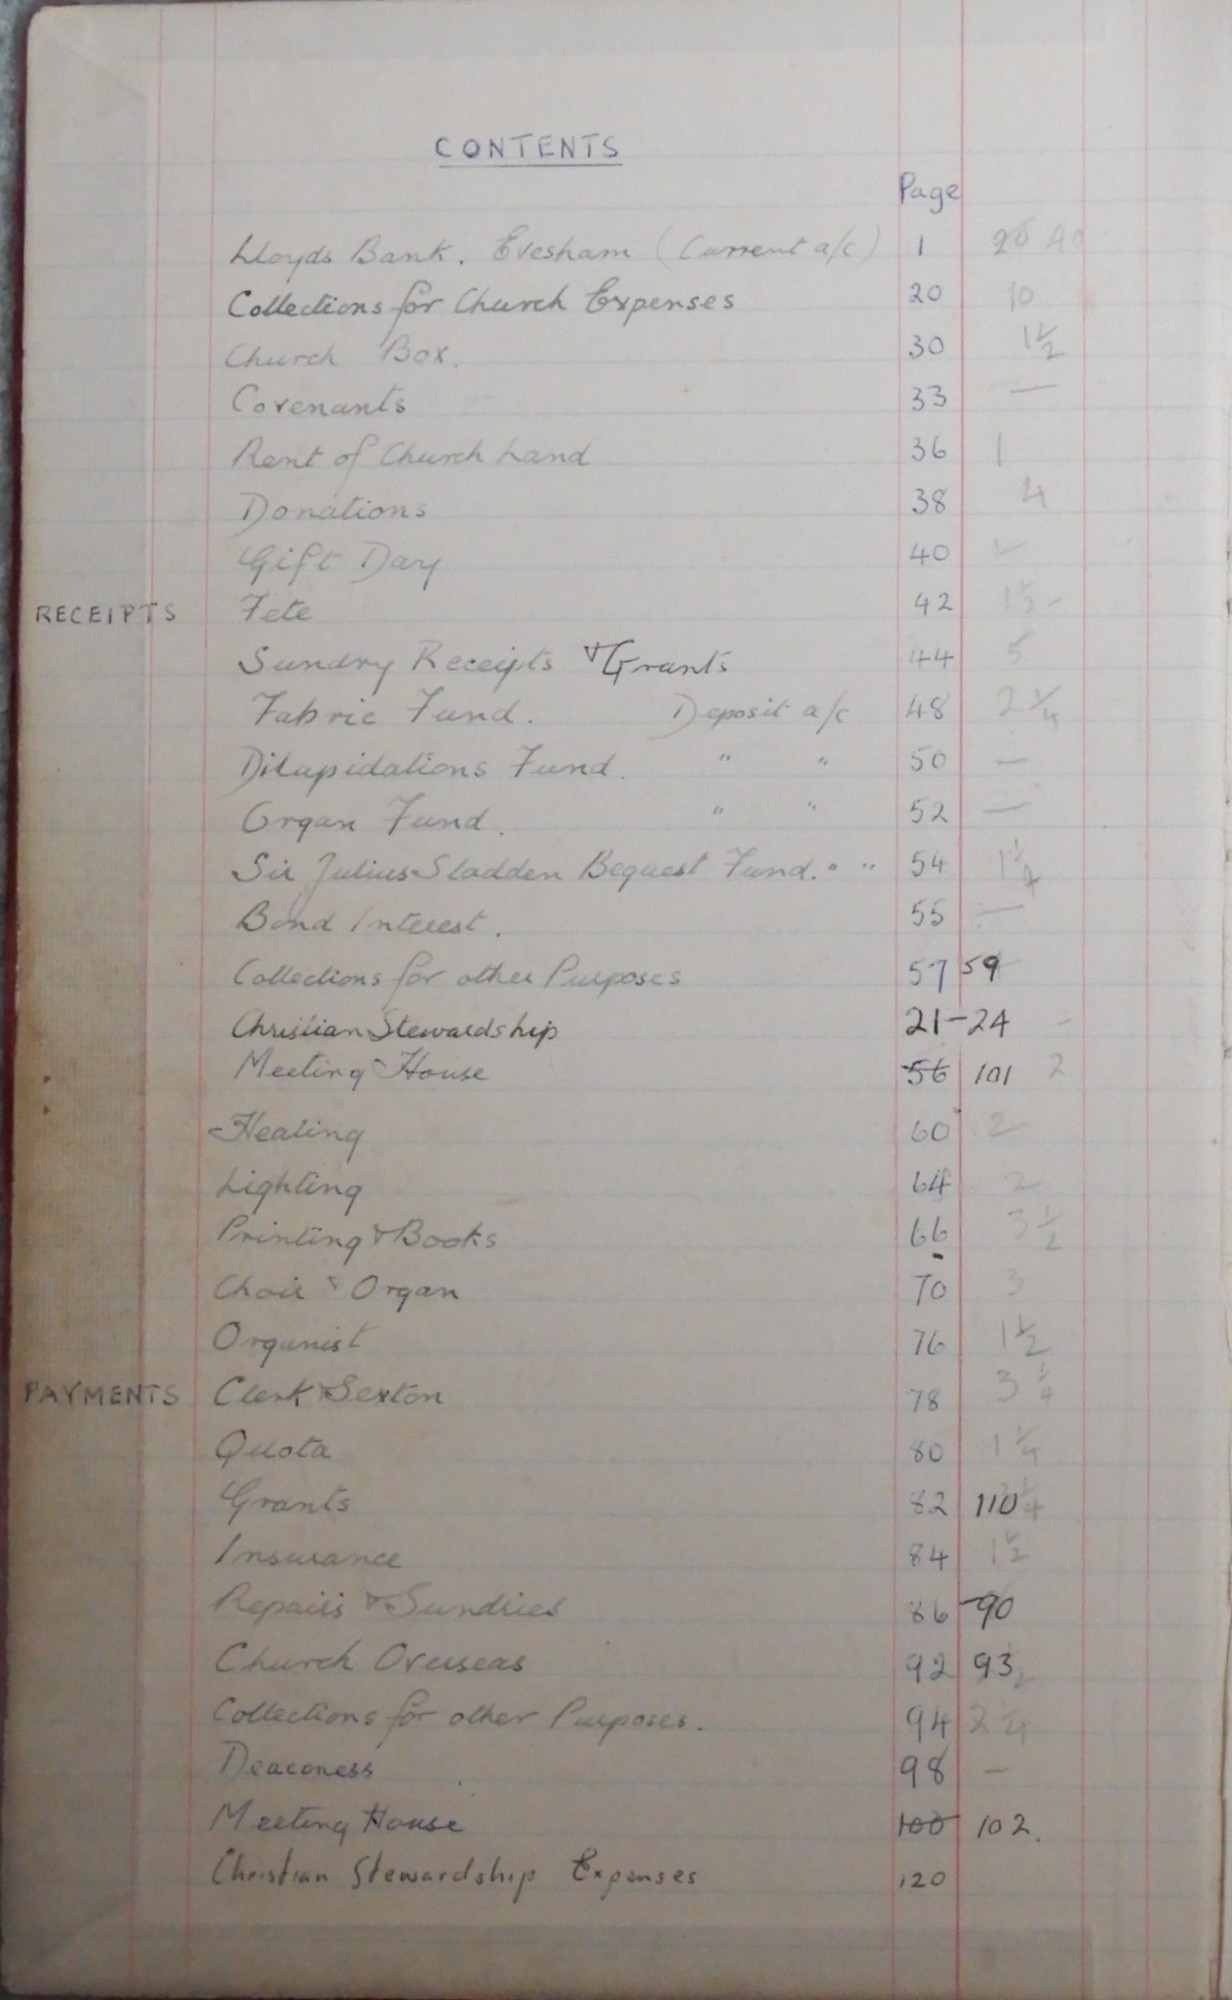 CONTENTS
Page
Lloyds Bank. Evesham (Current a/c) 1 20 40
Collections for Church Expenses 20 10
Church Box. 30 1½
Covenants 33 —
Rent of Church Land 36 1
Donations 38 4
Gift Day 40
RECEIPTS Fete 42 1½ -
Sundry Receipts & Grants 44 5
Fabric Fund. Deposit a/c 48 2¼
Dilapidations Fund. " " 50 —
Organ Fund. " " 52 —
Sir Julius Sladden Bequest Fund. " " 54 1¼
Bond Interest. 55 —
Collections for other Purposes 57 59
Christian Stewardship 21-24 -
Meeting House 56 101 2
Heating 60 2
Lighting 64 2
Printing & Books 66 3½
Choir & Organ 70 3
Organist 76 1½
PAYMENTS Clerk & Sexton 78 3¼
Quota 80 1¼
Grants 82 110
Insurance 84 1½
Repairs & Sundries 86 -90
Church Overseas 92 93
Collections for other Purposes. 94 2¼
Deaconess 98 —
Meeting House 100 102.
Christian Stewardship Expenses 120